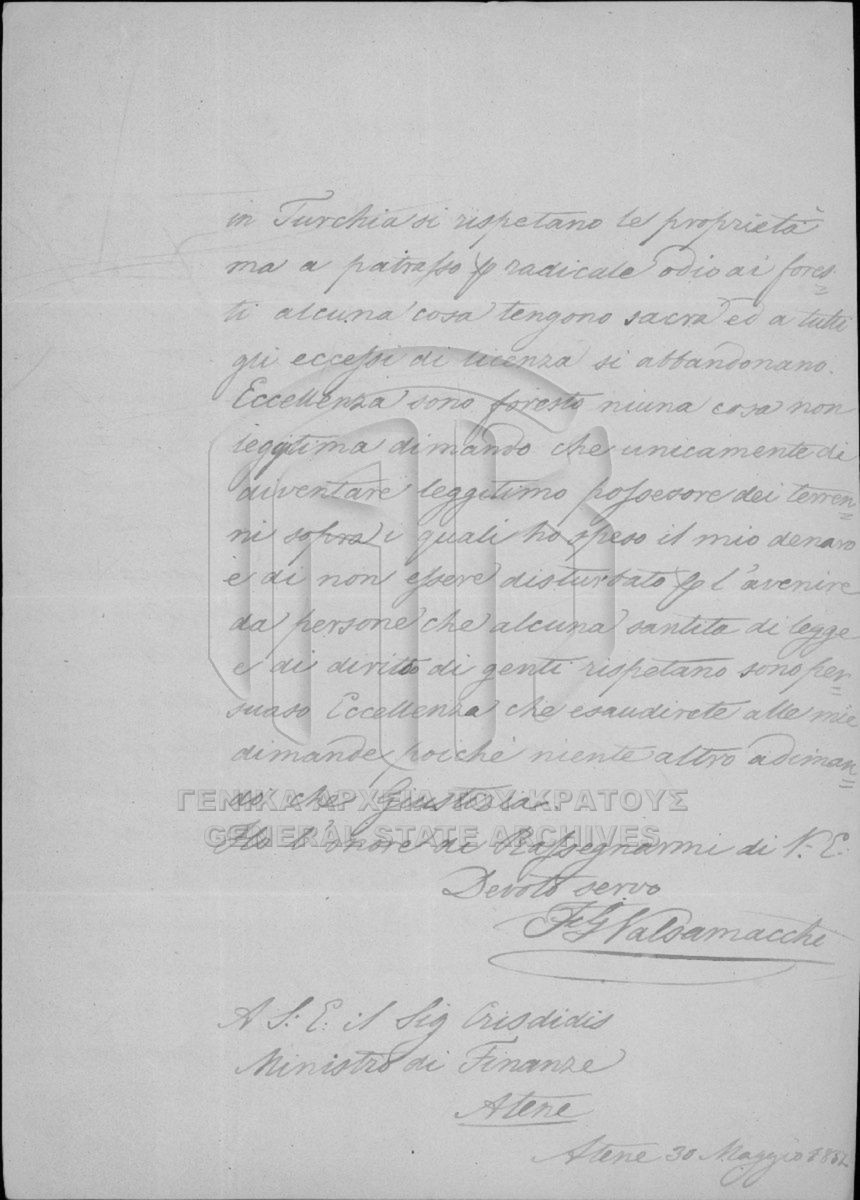 in Turchia si rispetano le proprietà
ma a patrasso p radicale odio ai fores=
ti alcuna cosa tengono sacra ed a tutti
gli eccessi di licenza si abbandonano.
Eccellenza sono foresto niuna cosa non
leggitima dimando che unicamente di
diventare leggitimo possesore dei terren=
ni sopra i quali ho speso il mio denaro
e di non essere disturbato p l'avenire
da persone che alcuna santita di legge
e di diritto di genti rispetano sono per=
suaso Eccellenza che esaudirete alle mie
dimande poiché niente altro adiman=
do che Giustizia.
ΓΕΝΙΚΑ ΑΡΧΕΙΑ ΤΟΥ ΚΡΑΤΟΥΣ
GENERAL STATE ARCHIVES
Ho l'onore di Rassegnarmi di V. E.
Devoto servo
Valsamacchi
A S. E. il Sig Crisdidis
Ministro di Finanze
Atene
Atene 30 Maggio